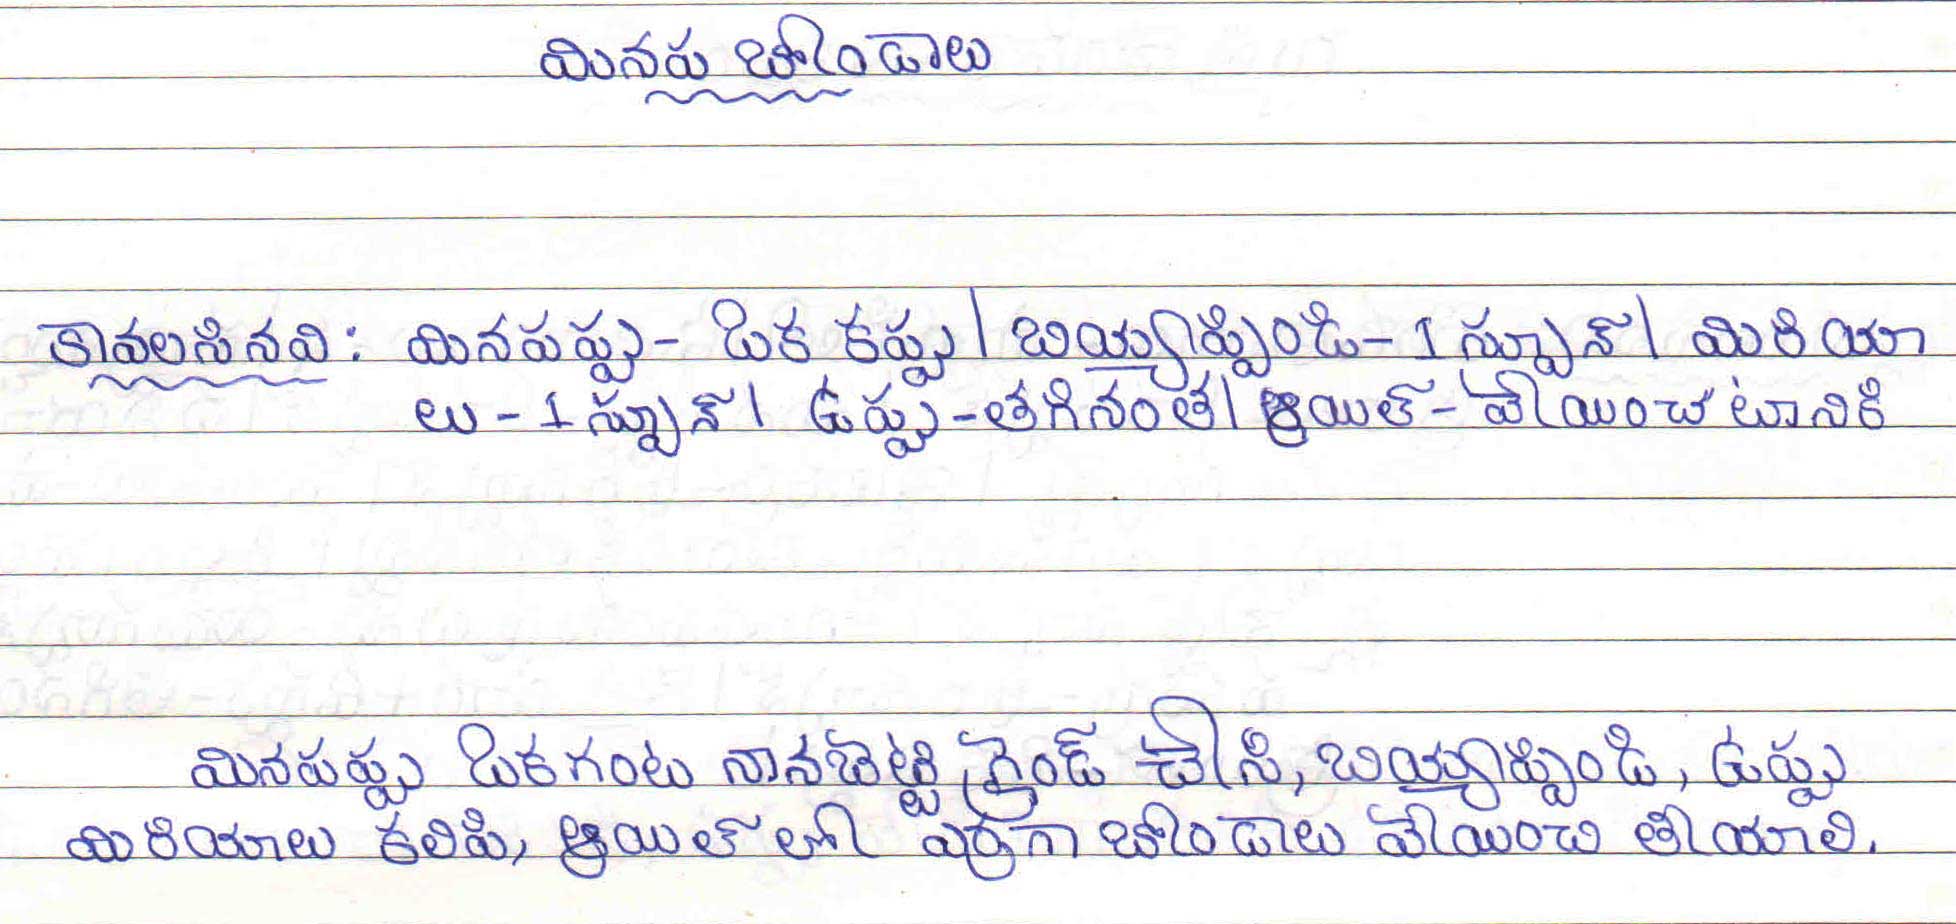 మినప బోండాలు
కావలసినవి: మినపప్పు - ఒక కప్పు | బియ్యప్పిండి - 1 స్పూన్ | మిరియా
లు - 1 స్పూన్ | ఉప్పు - తగినంత | ఆయిల్ - వేయించటానికి
మినపప్పు ఒకగంట నానబెట్టి గ్రైండ్ చేసి, బియ్యప్పిండి, ఉప్పు
మిరియాలు కలిపి, ఆయిల్ లో ఎర్రగా బోండాలు వేయించి తీయాలి.